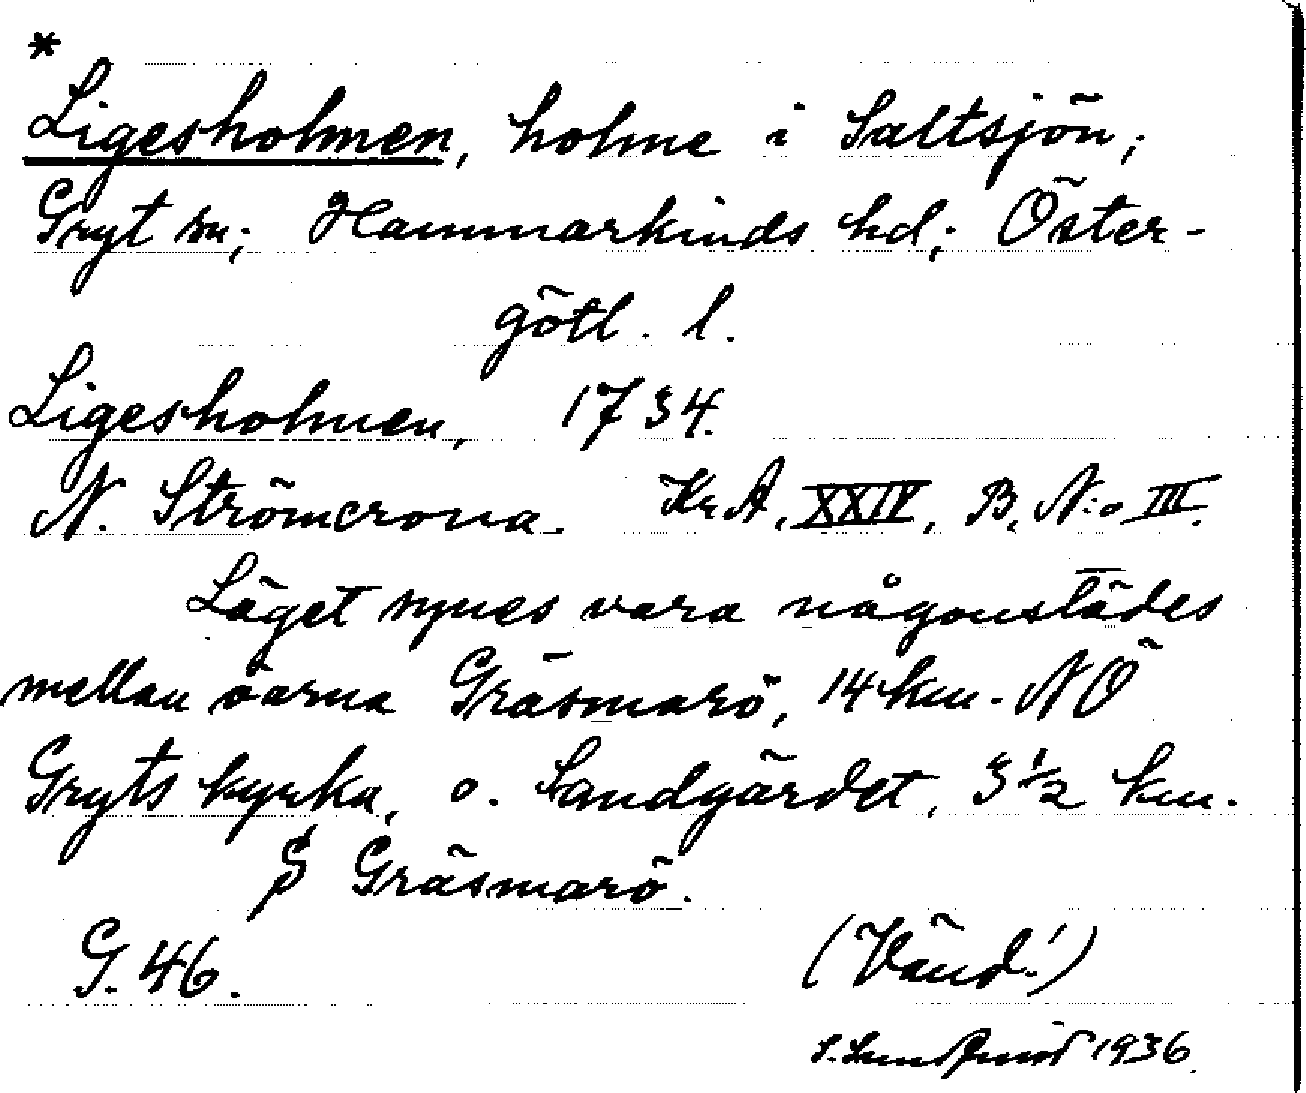 *
Ligesholmen, holme i Saltsjön;
Gryt sn; Hammarkinds hd; Öster-
götl. l.
Ligesholmen, 1734.
N. Strömcrona. Kr. A, XXIV, B, N:o III.
Läget synes vara någonstädes
mellan öarna Gräsmarö, 14 km. NÖ
Gryts kyrka, o. Sandgärdet, 3½ km.
S Gräsmarö.
G. 46. (Vänd!)
1936.